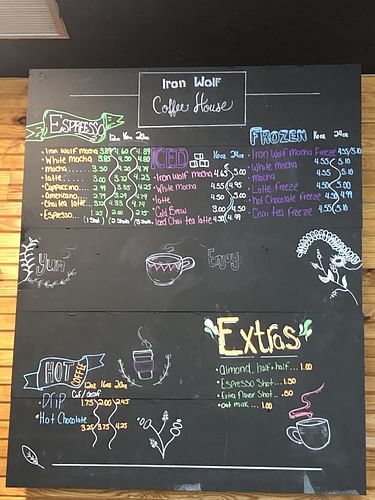 Iron Wolf
Coffee House
Espresso
12oz 16oz 20oz
• Iron Wolf mocha 3.89 4.60 4.89
• White mocha 3.85 4.50 4.80
• mocha 3.50 4.25 4.74
• latte 3.00 3.75 4.25
• Cappuccino 2.99 3.75 4.25
• Americano 2.79 3.29 3.75
• Chai tea latte 3.75 4.33 4.74
• Espresso 1.25 2.00
ICED
16oz 24oz
• Iron Wolf mocha 4.65 5.00
• White Mocha 4.55 4.95
• mocha 4.50
• latte 4.00
• Cold Brew 3.50 4.50
Iced Chai tea latte 4.50 4.99
Frozen
16oz 24oz
• Iron Wolf mocha Freeze 4.55/5.10
• White mocha 4.55 5.10
• Mocha 4.55 5.10
• Latte Freeze 4.50 5.00
• Hot Chocolate Freeze 4.50 4.99
• Chai tea Freeze 4.55 5.10
Yum
Enjoy
Extras
• Almond, half+half... 1.00
• Espresso Shot... 1.50
• Extra flavor Shot.. .50
• oat milk... 1.00
HOT COFFEE
12oz 16oz 20oz
Caf/decaf
• Drip 1.75 2.00 2.45
• Hot Chocolate
3.25 3.75 4.25